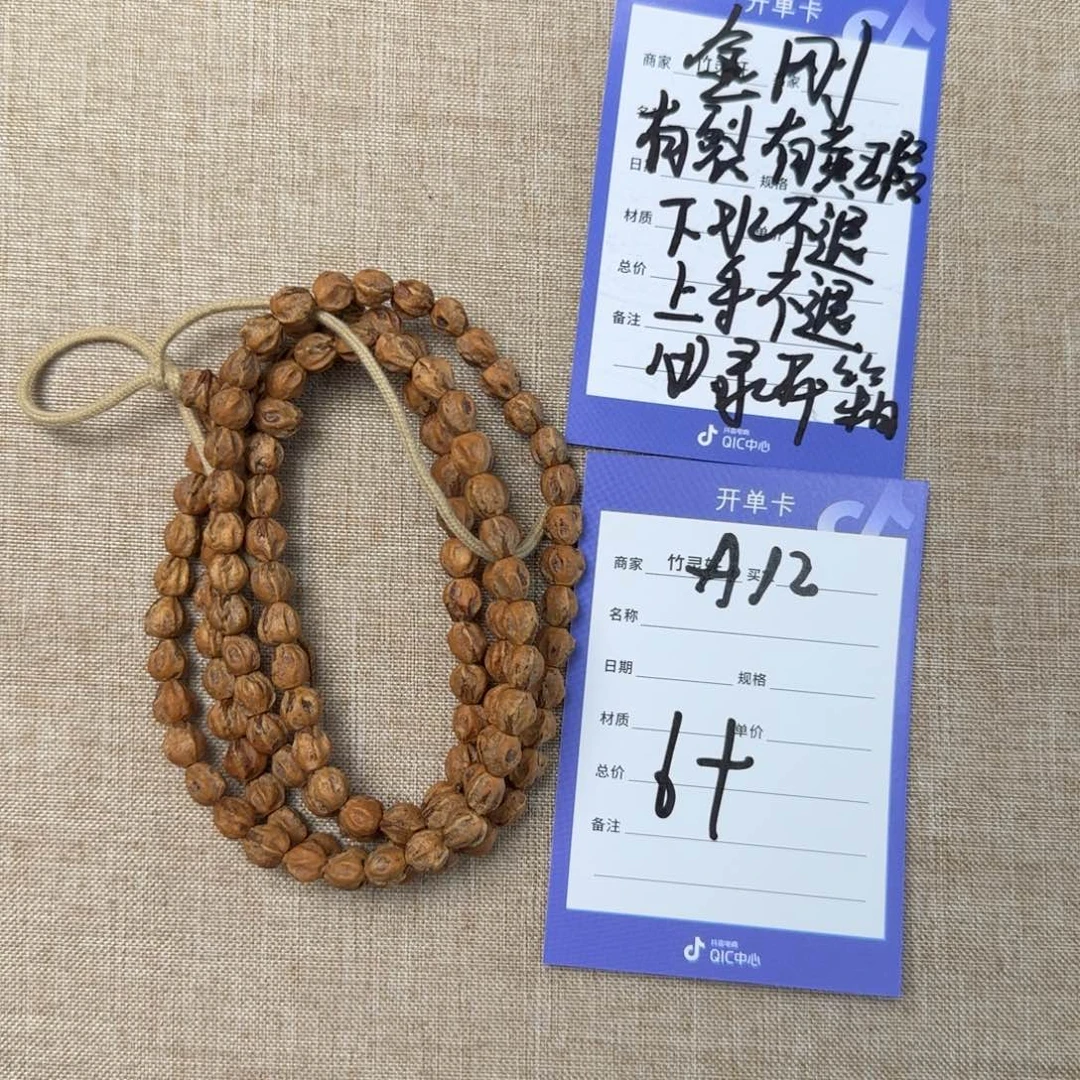 开单卡
金刚
商家
有裂有黄瑕
规格
材质
下水不退
总价
上手不退
备注
回录开箱
抖音电商
QIC中心
开单卡
商家 竹灵 买
A12
名称
日期 规格
材质 单价
6十
总价
备注
抖音电商
QIC中心